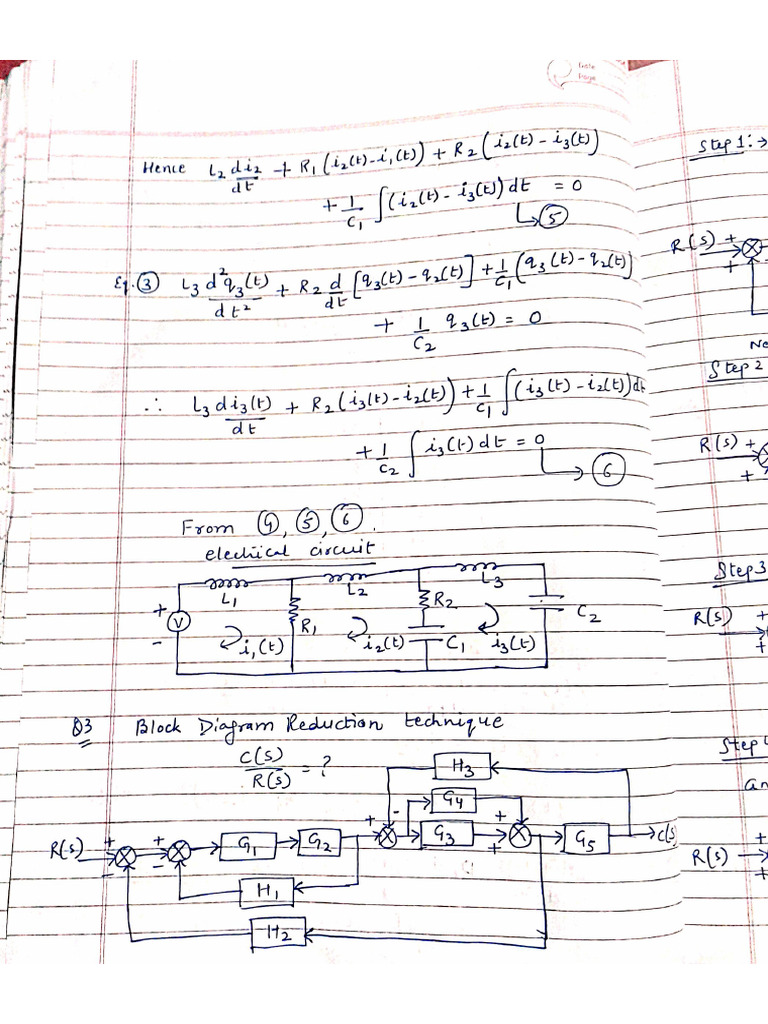 Date
Page
Hence L₂ di₂/dt + R₁(i₂(t)-i₁(t)) + R₂(i₂(t) - i₃(t))
+ 1/C₁ ∫(i₂(t) - i₃(t)) dt = 0
↳ ⑤
Eq. ③ L₃ d²q₃(t)/dt² + R₂ d/dt [q₃(t) - q₂(t)] + 1/C₁ (q₃(t) - q₂(t))
+ 1/C₂ q₃(t) = 0
∴ L₃ di₃(t)/dt + R₂(i₃(t) - i₂(t)) + 1/C₁ ∫(i₃(t) - i₂(t)) dt
+ 1/C₂ ∫ i₃(t) dt = 0
↳ ⑥
From ④, ⑤, ⑥.
electrical circuit
L₁ L₂ L₃
+ V - R₁ R₂ C₁ C₂
i₁(t) i₂(t) i₃(t)
Q3 Block Diagram Reduction technique
C(s)/R(s) = ?
H₃
- G₄ +
R(s) + - + - G₁ G₂ + G₃ + G₅ C(s)
H₁
H₂
Step 1: →
R(s) + +
Ne
Step 2
R(s) + +
Step 3
R(s) + +
Step 4
an
R(s) + +